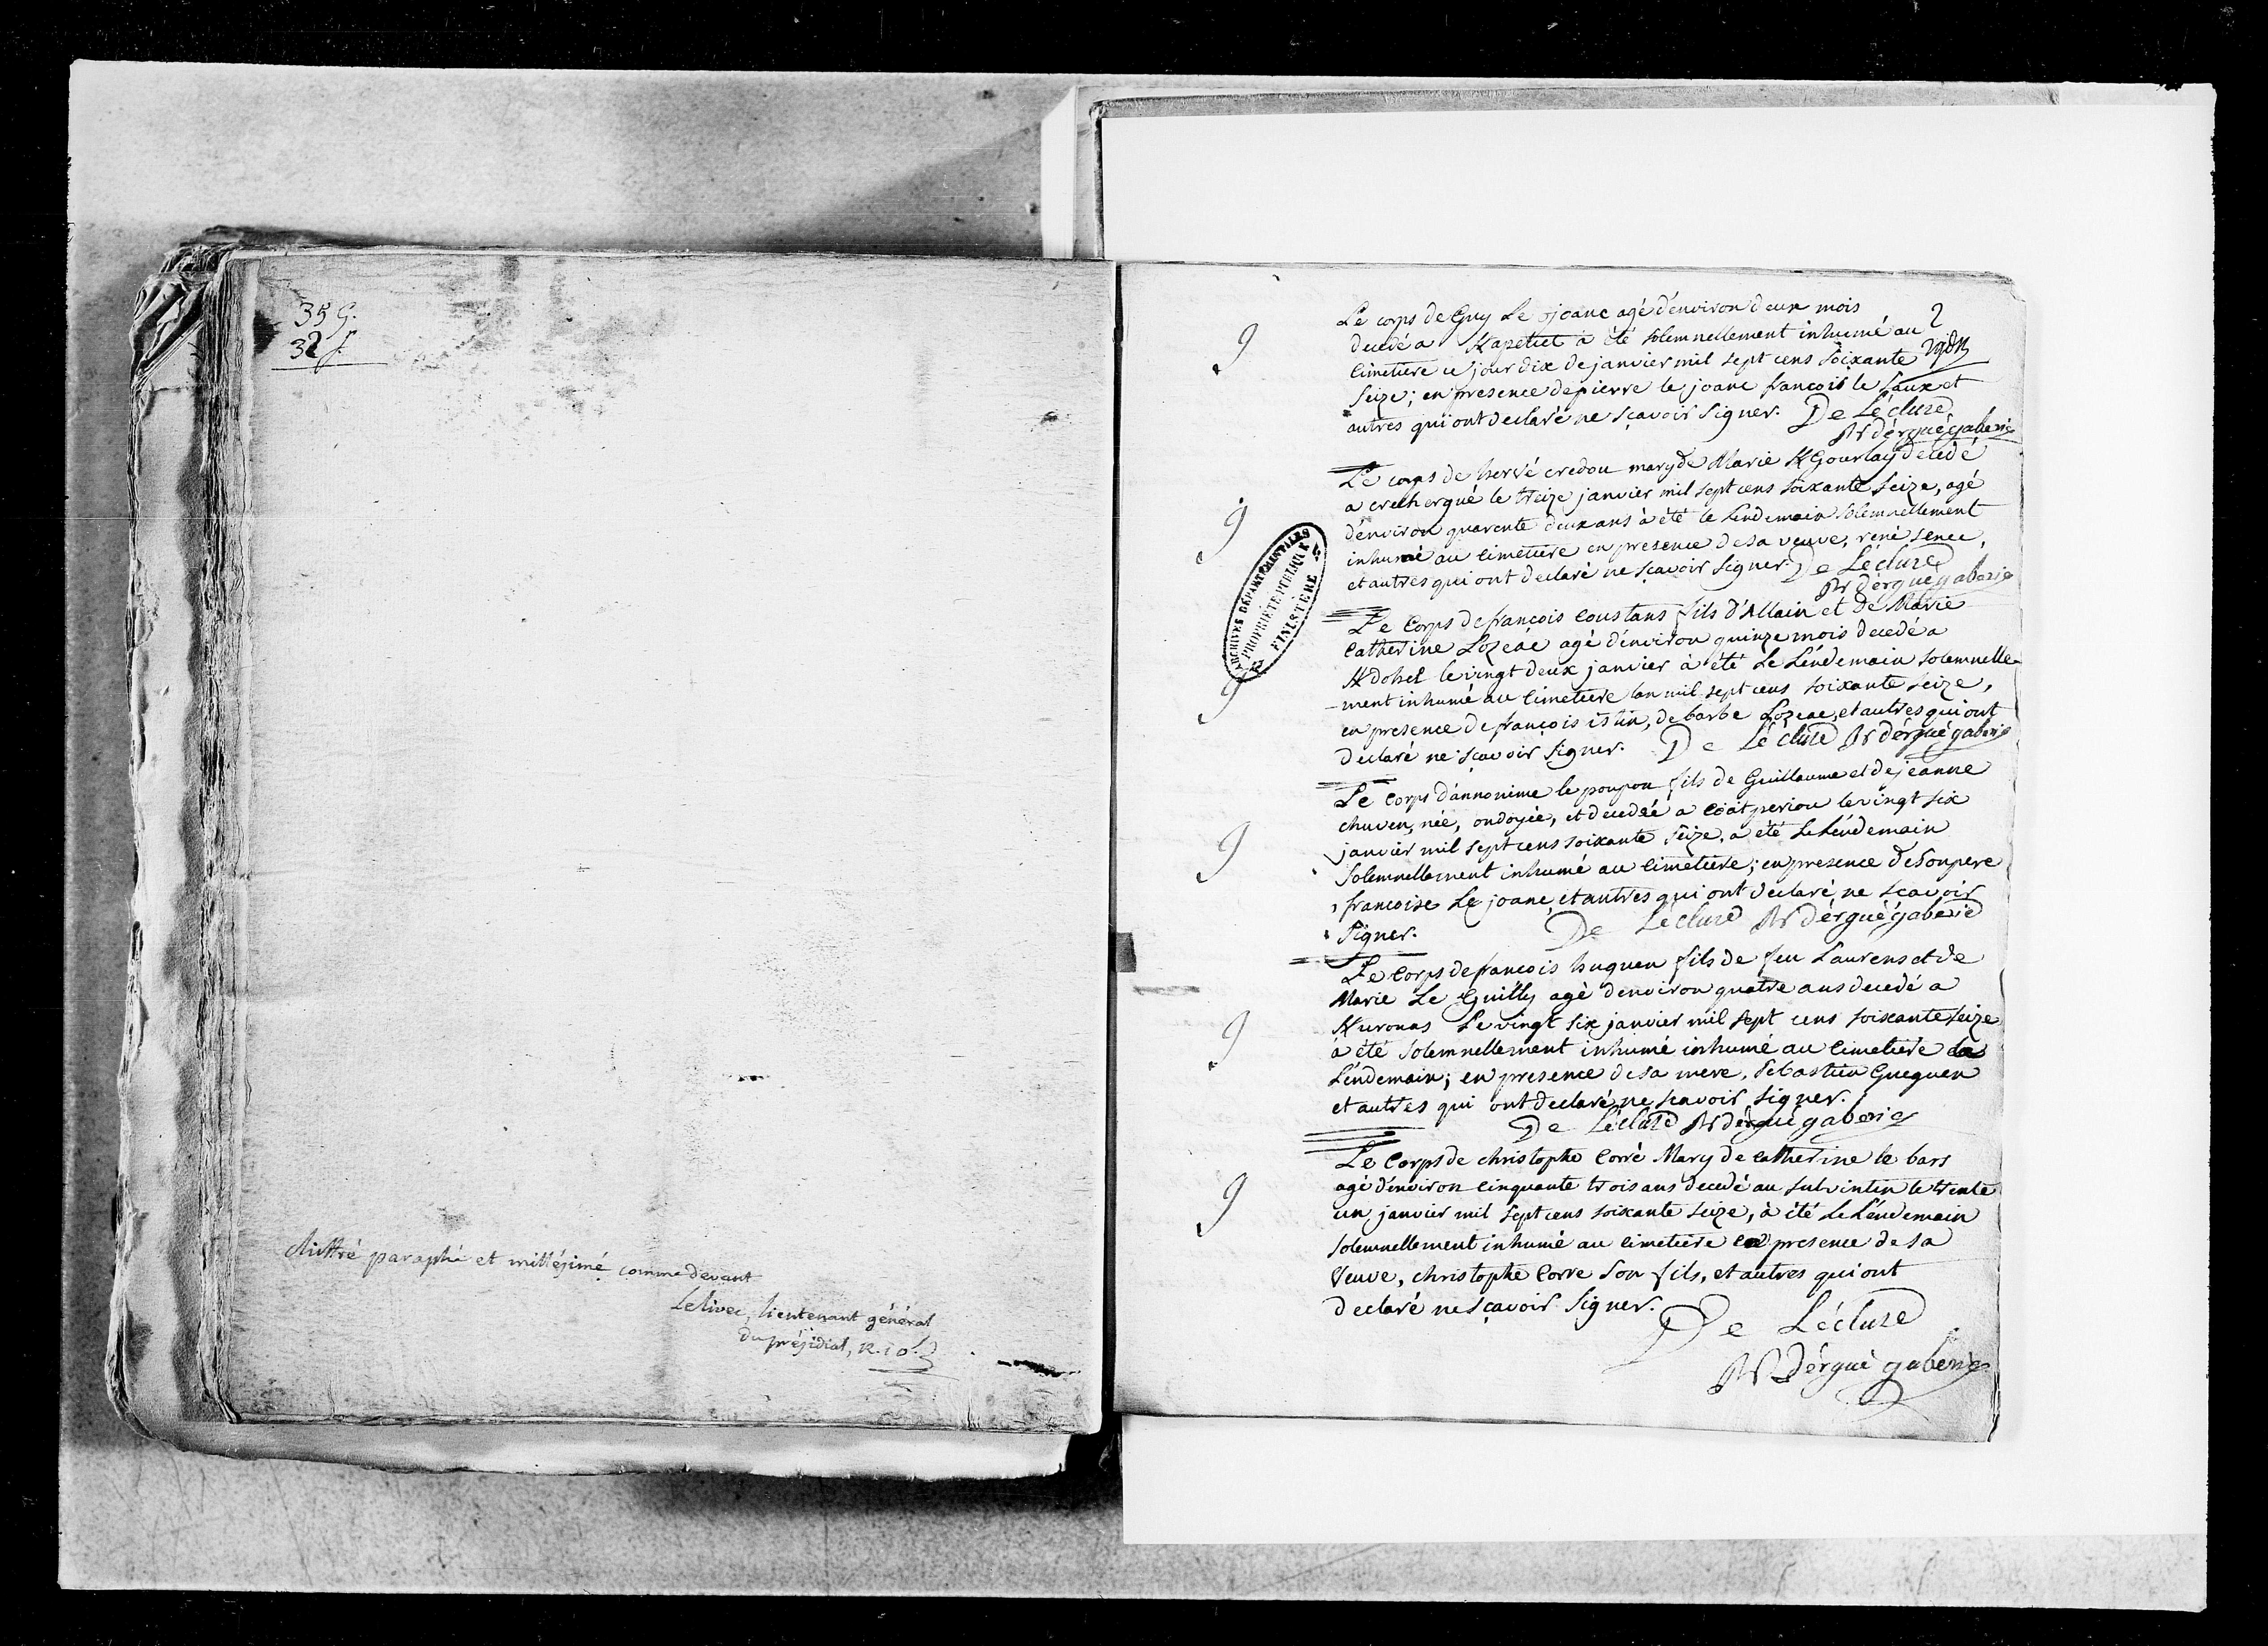 35 G.
32 f.
chiffré paraphé et millésimé comme devant
Le livec, lieutenant général
du présidial,
2
Le corps de Guy Le joanc agé d'environ deux mois
decedé a Kapetit à été solemnellement inhumé au
cimetiere ce jour dix de janvier mil sept cens soixante
seize; en presence de pierre le joanc francois le saux et
autres qui ont declaré ne sçavoir signer. De Lécluze
Rr dérgué gaberic
Le corps de hervé credou mary de Marie KGourlay decedé
a crechergué le treize janvier mil sept cens soixante seize, agé
d'environ quarente deux ans à été le lendemain solemnellement
inhumé au cimetiere en presence de sa veuve, réné senec,
et autres qui ont declaré ne sçavoir signer. De Lécluze
Rr dérgué gaberic
ARCHIVES DÉPARTEMENTALES
PROPRIÉTÉ PUBLIQUE
FINISTERE
Le Corps de francois Coustans fils d'Allain et de Marie
Catherine Lozeac agé d'environ quinze mois decedé a
Kdohel le vingt deux janvier à été Le Lendemain solemnelle
-ment inhumé au cimetiere lan mil sept cens soixante seize,
en presence de françois istin, de barbe Lozeac, et autres qui ont
declaré ne sçavoir signer. De Lécluze Rr dérgué gaberic
Le corps d'annonime le poupon fils de Guillaume et de jeanne
chuven, née, ondoyée, et decedéé a Coat periou le vingt six
janvier mil sept cens soixante seize, a été Le Lendemain
solemnellement inhumé au cimetiere; en presence de son pere
francoise Le joanc, et autres qui ont declaré ne sçavoir
signer. De Lécluze Rr dérgué gaberic
Le Corps de francois huguen fils de feu Laurens et de
Marie Le Guilly agé d'environ quatre ans decedé a
Kuronas Le vingt six janvier mil sept cens soixante seize
à été solemnellement inhumé inhumé au cimetiere le
Lendemain; en presence de sa mere, sebastien Gueguen
et autres qui ont declaré ne scavoir signer.
De Lécluze Rr dérgué gaberic
Le Corps de christophe Corré Mary de catherine le bars
agé d'environ cinquante trois ans decedé au sulvintin le trente
un janvier mil sept cens soixante seize, à été Le Lendemain
solemnellement inhumé au cimetiere en presence de sa
Veuve, christophe Corre son fils, et autres qui ont
declaré ne sçavoir signer.
De Lécluze
Rr dérgué gaberic